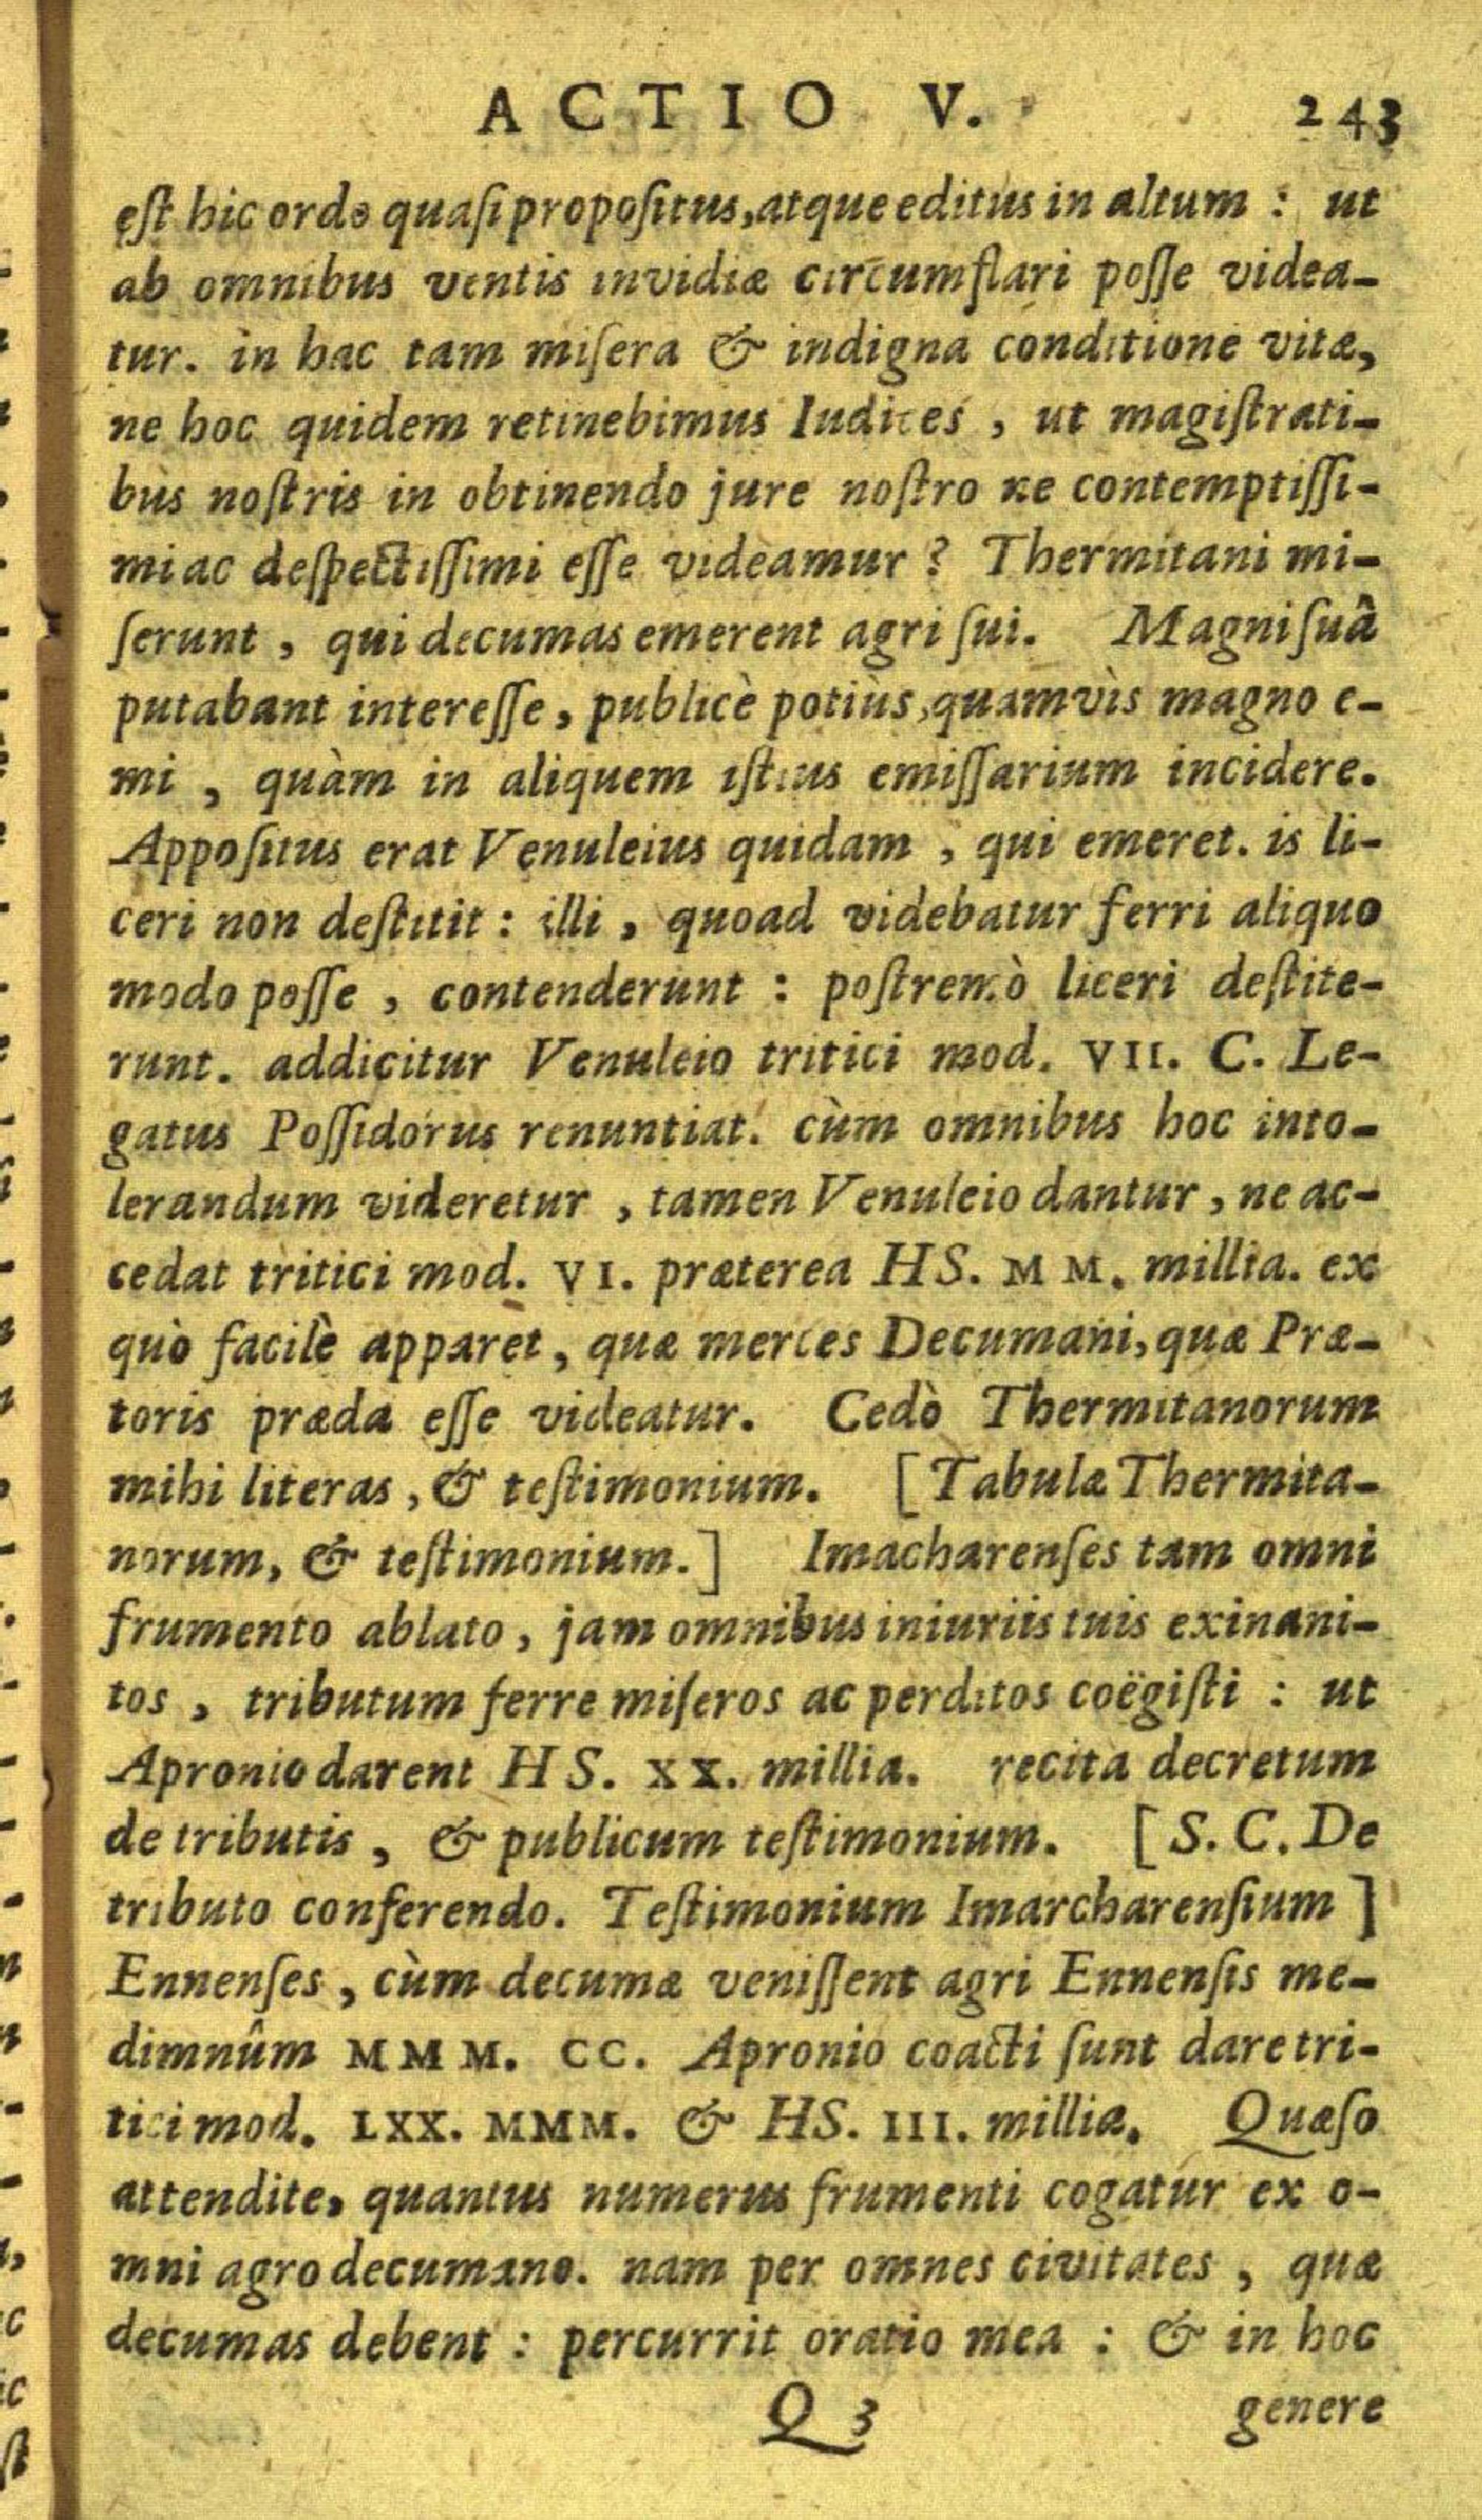 ACTIO V. 243
eſt hic ordo quaſi propoſitus, atque editus in altum : ut
ab omnibus ventis invidiæ circumflari poſſe videa-
tur. in hac tam miſera & indigna conditione vitæ,
ne hoc quidem retinebimus Iudices , ut magiſtrati-
bus noſtris in obtinendo jure noſtro ne contemptiſſi-
mi ac deſpectiſſimi eſſe videamur ? Thermitani mi-
ſerunt , qui decumas emerent agri ſui. Magni ſuâ
putabant intereſſe, publicè potiùs, quamvìs magno e-
mi , quàm in aliquem iſtius emiſſarium incidere.
Appoſitus erat Venuleius quidam , qui emeret. is li-
ceri non deſtitit : illi , quoad videbatur ferri aliquo
modo poſſe , contenderunt : poſtremò liceri deſtite-
runt. addicitur Venuleio tritici mod. VII. C. Le-
gatus Poſſidorus renuntiat. cùm omnibus hoc into-
lerandum videretur , tamen Venuleio dantur , ne ac-
cedat tritici mod. VI. præterea HS. MM. millia. ex
quò facilè apparet, quæ merces Decumani, quæ Præ-
toris præda eſſe videatur. Cedò Thermitanorum
mihi literas , & teſtimonium. [ Tabulæ Thermita-
norum, & teſtimonium. ] Imacharenſes tam omni
frumento ablato , jam omnibus iniuriis tuis exinani-
tos , tributum ferre miſeros ac perditos coëgiſti : ut
Apronio darent HS. XX. millia. recita decretum
de tributis , & publicum teſtimonium. [ S. C. De
tributo conferendo. Teſtimonium Imarcharenſium ]
Ennenſes , cùm decumæ veniſſent agri Ennenſis me-
dimnûm MMM. CC. Apronio coacti ſunt dare tri-
tici mod. LXX. MMM. & HS. III. millia. Quæſo
attendite, quantus numerus frumenti cogatur ex o-
mni agro decumano. nam per omnes civitates , quæ
decumas debent : percurrit oratio mea : & in hoc
Q 3 genere